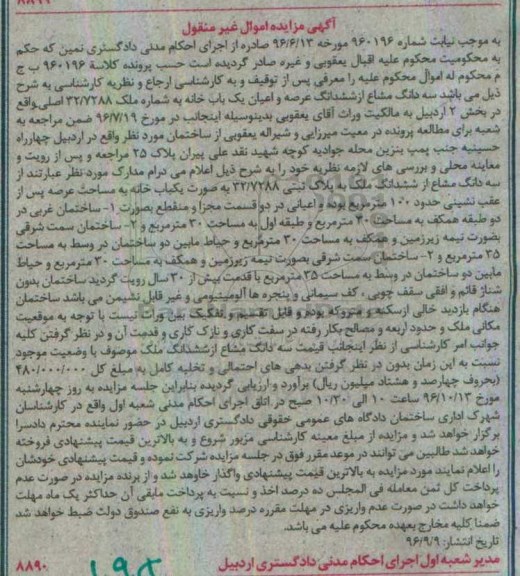 آگهی مزایده اموال غیر منقول
به موجب نیابت شماره ۹۶۰۱۹۶ مورخه ۹۶/۶/۱۳ صادره از اجرای احکام مدنی دادگستری نمین که حکم
به محکومیت محکوم علیه اقبال یعقوبی و غیره صادر گردیده است حسب پرونده کلاسه ۹۶۰۱۹۶ ب ج
م محکوم له اموال محکوم علیه را معرفی پس از توقیف و به کارشناسی ارجاع و نظریه کارشناسی به شرح
ذیل می باشد سه دانگ مشاع ازششدانگ عرصه و اعیان یک باب خانه به شماره ملک ۳۲/۷۲۸۸ اصلی واقع
در بخش ۲ اردبیل به مالکیت وراث آقای یعقوبی بدینوسیله اینجانب در مورخ ۹۶/۷/۱۹ ضمن مراجعه به
شعبه برای مطالعه پرونده در معیت میرزایی و شیراله یعقوبی از ساختمان مورد نظر واقع در اردبیل چهارراه
حسینیه جنب پمپ بنزین محله جوادیه کوچه شهید نقد علی پیران پلاک ۲۵ مراجعه و پس از رویت و
معاینه محلی و بررسی های لازمه نظریه خود را به شرح ذیل اعلام می درام مدارک مورد نظر عبارتند از
سه دانگ مشاع از ششدانگ ملک به پلاک ثبتی ۳۲/۷۲۸۸ به صورت یکباب خانه به مساحت عرصه پس از
عقب نشینی حدود ۱۰۰ مترمربع بوده و اعیانی در دو قسمت مجزا و منقطع بصورت ۱- ساختمان غربی در
دو طبقه همکف به مساحت ۳۰ مترمربع و طبقه اول به مساحت ۳۰ مترمربع و ۲- ساختمان سمت شرقی
بصورت نیمه زیرزمین و همکف به مساحت ۳۰ مترمربع و حیاط مابین دو ساختمان در وسط به مساحت
۳۵ مترمربع و ۲- ساختمان سمت شرقی بصورت نیمه زیرزمین و همکف به مساحت ۳۰ مترمربع و حیاط
مابین دو ساختمان در وسط به مساحت ۳۵ مترمربع با قدمت بیش از ۳۰ سال رویت گردید ساختمان بدون
شناژ قائم و افقی سقف چوبی ، کف سیمانی و پنجره ها آلومینیومی و غیر قابل نشیمن می باشد ساختمان
هنگام بازدید خالی ازسکنه و متروکه بوده و قابل تقسیم و تفکیک بین وراث نیست با توجه به موقعیت
مکانی ملک و حدود اربعه و مصالح بکار رفته در سفت کاری و نازک کاری و قدمت آن و در نظر گرفتن کلیه
جوانب امر کارشناسی از نظر اینجانب قیمت سه دانگ مشاع ازششدانگ ملک موصوف با وضعیت موجود
نسبت به این زمان بدون در نظر گرفتن بدهی های احتمالی و تخلیه کامل به مبلغ کل ۴۸۰/۰۰۰/۰۰۰
(بحروف چهارصد و هشتاد میلیون ریال) برآورد و ارزیابی گردیده بنابراین جلسه مزایده به روز چهارشنبه
مورخ ۹۶/۱۰/۱۳ ساعت ۱۰ الی ۱۰/۳۰ صبح در اتاق اجرای احکام مدنی شعبه اول واقع در کارشناسان
شهرک اداری ساختمان دادگاه های عمومی حقوقی دادگستری اردبیل در حضور نماینده محترم دادسرا
برگزار خواهد شد و مزایده از مبلغ معینه کارشناسی مزبور شروع و به بالاترین قیمت پیشنهادی فروخته
خواهد شد طالبین می توانند در موعد مقرر فوق در جلسه مزایده شرکت نموده و قیمت پیشنهادی خودشان
را اعلام نمایند مورد مزایده به بالاترین قیمت پیشنهادی واگذار خاوهد شد و از برنده مزایده در صورت عدم
پرداخت کل ثمن معامله فی المجلس ده درصد اخذ و نسبت به پرداخت مابقی آن حداکثر یک ماه مهلت
خواهد داشت در صورت عدم واریزی در مهلت مقرره درصد واریزی به نفع صندوق دولت ضبط خواهد شد
ضمنا کلیه مخارج بعهده محکوم علیه می باشد.
تاریخ انتشار: ۹۶/۹/۹
مدیر شعبه اول اجرای احکام مدنی دادگستری اردبیل
۸۸۹۰